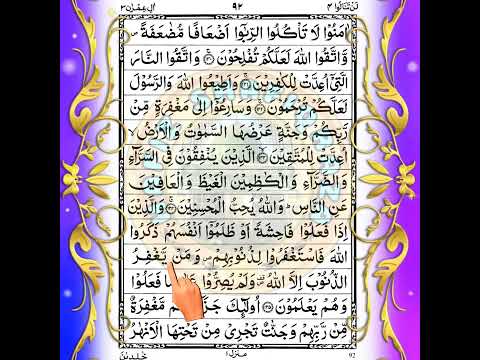 لَنْ تَنَالُوا ٤ ٩٢ اٰلِ عِمْرٰن ٣
اٰمَنُوْا لَا تَاْكُلُوا الرِّبٰٓوا اَضْعَافًا مُّضٰعَفَةً ص
وَّاتَّقُوا اللّٰهَ لَعَلَّكُمْ تُفْلِحُوْنَ ﴿١٣٠﴾ وَاتَّقُوا النَّارَ
الَّتِيْٓ اُعِدَّتْ لِلْكٰفِرِيْنَ ﴿١٣١﴾ وَاَطِيْعُوا اللّٰهَ وَالرَّسُوْلَ
لَعَلَّكُمْ تُرْحَمُوْنَ ﴿١٣٢﴾ وَسَارِعُوْٓا اِلٰى مَغْفِرَةٍ مِّنْ
رَّبِّكُمْ وَجَنَّةٍ عَرْضُهَا السَّمٰوٰتُ وَالْاَرْضُ ۙ
اُعِدَّتْ لِلْمُتَّقِيْنَ ﴿١٣٣﴾ الَّذِيْنَ يُنْفِقُوْنَ فِي السَّرَّآءِ
وَالضَّرَّآءِ وَالْكٰظِمِيْنَ الْغَيْظَ وَالْعَافِيْنَ
عَنِ النَّاسِ ؕ وَاللّٰهُ يُحِبُّ الْمُحْسِنِيْنَ ﴿١٣٤﴾ وَالَّذِيْنَ
اِذَا فَعَلُوْا فَاحِشَةً اَوْ ظَلَمُوْٓا اَنْفُسَهُمْ ذَكَرُوا
اللّٰهَ فَاسْتَغْفَرُوْا لِذُنُوْبِهِمْ ص وَمَنْ يَّغْفِرُ
الذُّنُوْبَ اِلَّا اللّٰهُ ۪ وَلَمْ يُصِرُّوْا فَعَلُوْا
وَهُمْ يَعْلَمُوْنَ ﴿١٣٥﴾ اُولٰٓئِكَ مَّغْفِرَةٌ
مِّنْ رَّبِّهِمْ وَجَنّٰتٌ تَجْرِيْ مِنْ تَحْتِهَا الْاَنْهٰرُ
منزل ١ خٰلِدِيْنَ